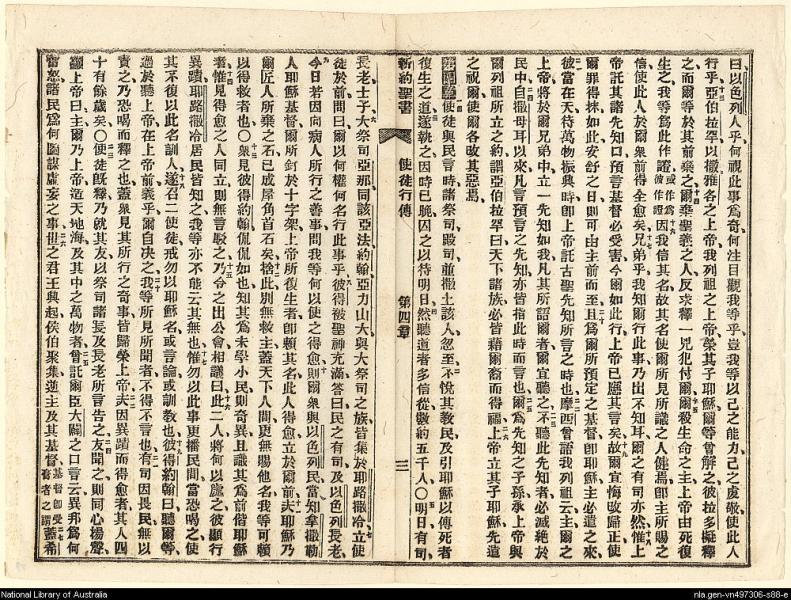 曰以色列人乎何視此事爲奇何注目觀我等乎豈我等以己之能力己之虔敬使此人
行乎亞伯拉罕以撒雅各之上帝我列祖之上帝榮其子耶穌爾等曾解之彼拉多擬釋
之而爾等於其前棄之爾棄聖義之人反求釋一兇犯付爾爾殺生命之主上帝由死復
生之我等爲此作證或作爲彼作證因我信其名故其名使爾所見所識之人健焉卽主所賜之
信使此人於爾衆前得全愈矣兄弟乎我知爾行此事乃出不知耳爾之有司亦然惟上
帝託其諸先知口預言基督必受害今爾如此行上帝已應其言矣故爾宜悔改歸正使
爾罪得抹如此安舒之日則可由主前而至且爲爾所預定之基督卽耶穌主必遣之來
彼當在天待萬物振興時卽上帝託古聖先知所言之時也摩西曾語我列祖云主爾之
上帝將於爾兄弟中立一先知如我凡其所語爾者爾宜聽之不聽此先知者必滅絶於
民中自撒母耳以來凡言預言之先知亦皆指此時而言也爾爲先知之子孫承上帝與
爾列祖所立之約謂亞伯拉罕曰天下諸族必皆藉爾裔而得福上帝立其子耶穌先遣
之祝爾使爾各改其惡焉
第四章使徒與民言時諸祭司殿司並撒土該人忽至不悅其教民及引耶穌以傳死者
復生之道遂執之因時已晚囚之以待明日然聽道者多信從數約五千人〇明日有司
新約聖書 使徒行傳 第四章 三
長老士子大祭司亞那同該亞法約翰亞力山大與大祭司之族皆集於耶路撒冷立使
徒於前問曰爾以何權何名行此事乎彼得被聖神充滿答曰民之有司及以色列長老
今日若因向病人所行之善事問我等何以使之得愈則爾衆與以色列民當知拿撒勒
人耶穌基督爾所釘於十字架上帝所復生者卽賴其名此人得愈立於爾前夫耶穌乃
爾匠人所棄之石已成屋角首石矣捨此別無救主蓋天下人間更無賜他名我等可賴
以得救者也〇衆見彼得約翰侃侃如也知其爲未學小民則奇異且識其爲前偕耶穌
者惟見得愈之人同立則無言駁之乃令之出公會相議曰此二人將何以處之彼顯行
異蹟耶路撒冷居民皆知之我等亦不能云其無也惟勿以此事更播民間當恐喝之使
其不復以此名訓人遂召二使徒戒勿以耶穌名或言論或訓教也彼得約翰曰聽爾等
過於聽上帝在上帝前義乎爾自决之我等所見所聞者不得不言也有司因畏民無以
責之乃恐喝而釋之也蓋衆見其所行之奇事皆歸榮上帝夫因異蹟而得愈者其人四
十有餘歲矣〇使徒旣釋乃就其友以祭司諸長及長老所言告之友聞之則同心揚聲
籲上帝曰主爾乃上帝造天地海及其中之萬物者曾託爾臣大闢之口言云異邦爲何
奮怒諸民爲何圖謀虛妄之事世之君王興起侯伯聚集逆主及其基督基督卽受膏者之謂蓋希
National Library of Australia
nla.gen-vn497306-s88-e